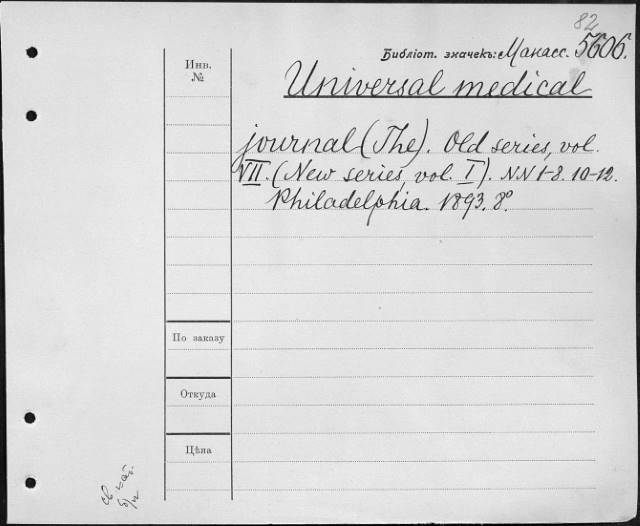 82
Библіот. значекъ: Манасс. 5606.
Инв.
№
Universal medical
journal (The). Old series, vol.
VII. (New series, vol. I). NN 1-8. 10-12.
Philadelphia. 1893. 8°
По заказу
Откуда
Цѣна